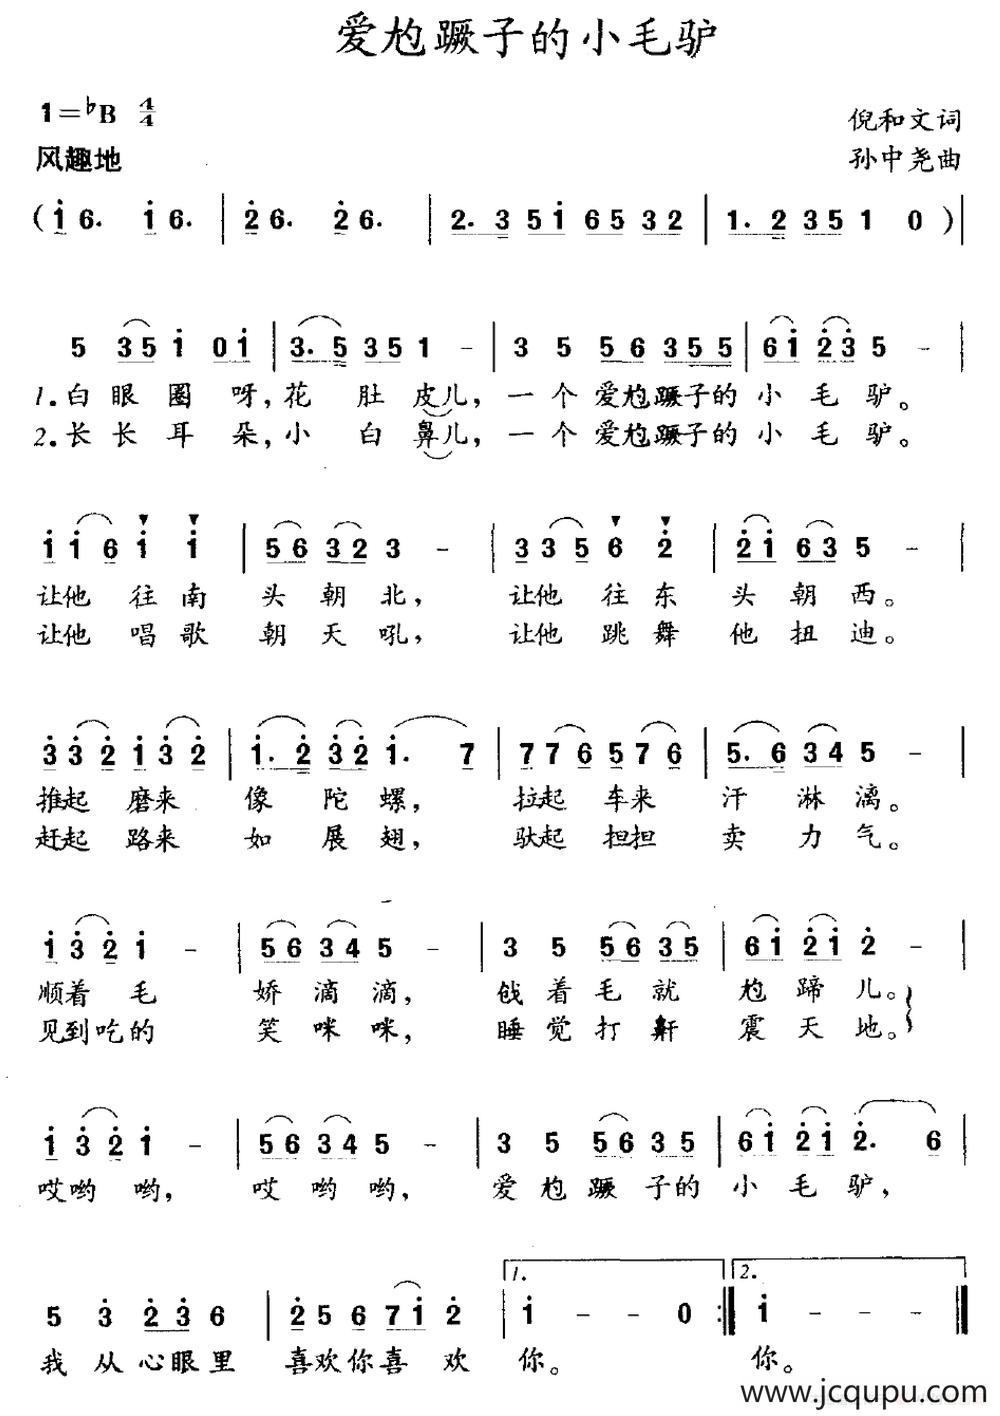 爱尥蹶子的小毛驴
1=♭B 4/4
倪和文词
风趣地
孙中尧曲
(i 6. i 6. | 2 6. 2 6. | 2. 3 5 i 6 5 3 2 | 1. 2 3 5 1 0 ) |
5 3 5 i 0 i | 3. 5 3 5 1 - | 3 5 5 6 3 5 5 | 6 i 2 3 5 - |
1.白眼圈呀,花肚皮儿,一个爱尥蹶子的小毛驴。
2.长长耳朵,小白鼻儿,一个爱尥蹶子的小毛驴。
i i 6 i i | 5 6 3 2 3 - | 3 3 5 6 2 | 2 i 6 3 5 - |
让他往南头朝北,让他往东头朝西。
让他唱歌朝天吼,让他跳舞他扭迪。
3 3 2 i 3 2 | i. 2 3 2 i. 7 | 7 7 6 5 7 6 | 5. 6 3 4 5 - |
推起磨来像陀螺,拉起车来汗淋漓。
赶起路来如展翅,驮起担担卖力气。
i 3 2 i - | 5 6 3 4 5 - | 3 5 5 6 3 5 | 6 i 2 i 2 - |
顺着毛娇滴滴,戗着毛就尥蹄儿。
见到吃的笑咪咪,睡觉打鼾震天地。
i 3 2 i - | 5 6 3 4 5 - | 3 5 5 6 3 5 | 6 i 2 i 2. 6 |
哎哟哟,哎哟哟,爱尥蹶子的小毛驴,
1. 2.
5 3 2 3 6 | 2 5 6 7 i 2 | i - - 0 :| i - - - |
我从心眼里喜欢你喜欢你。你。
www.jcqupu.com